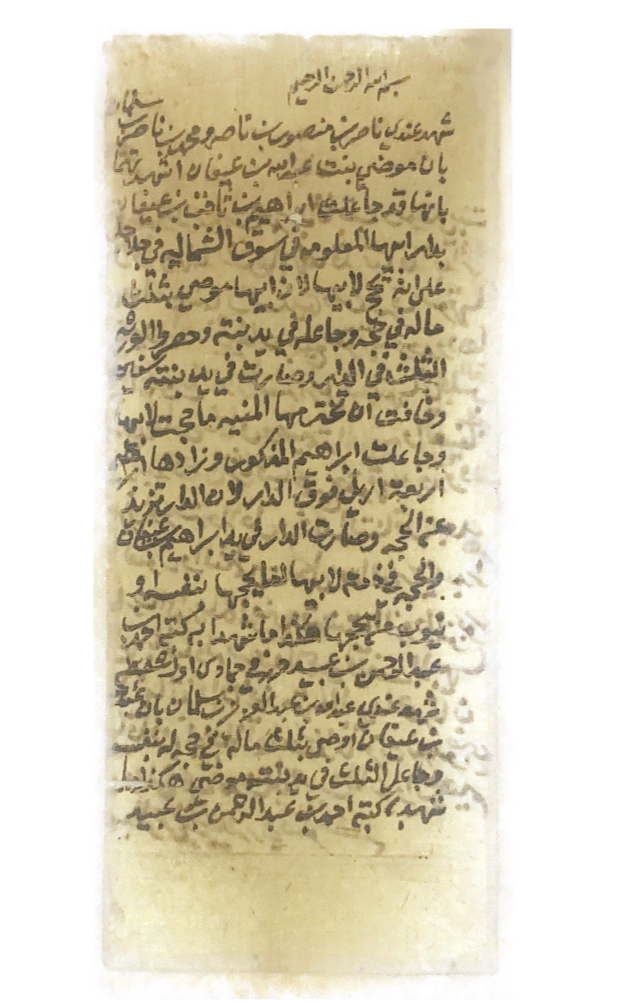 بسم الله الرحمن الرحيم
شهد عندي ناصر بن منصور بن ناصر ومحمد بن ناصر بن سلمان
بان موضي بنت عبدالله بن عيفان اشهدتهما
بانها قد جاعلت ابراهيم بن ثاقب بن عيفان
بدار ابيها المعلومه في سوق الشماليه في جلاجل
على انه يحج لابيها لان ابيها موصي بثلث
ماله في حجه وجاعله في يد بنته وحصروا الورثه
الثلث في الدار وصارت في يد بنته
وخافت ان تخترمها المنيه ما حجت لابيها
وجاعلت ابراهيم المذكور وزادها ابراهيم
اربعة اريل فوق الدار لان الدار تزيد
عن الحجه وصارت الدار في يد ابراهيم بن عيفان
والحجه في ذمته لابيها يحجها بنفسه او
ينوب من يحجها هذا ما شهدا به كتبه احمد بن
عبدالرحمن بن عبيد في جمادى اول
شهد عندي عبدالله بن عبدالعزيز بن سلمان بان عبدالله
بن عيفان اوصى بثلث ماله في حجه له بنفسه
وجاعل الثلث في يد بنته موضي هكذا
شهد كتبه احمد بن عبدالرحمن بن عبيد